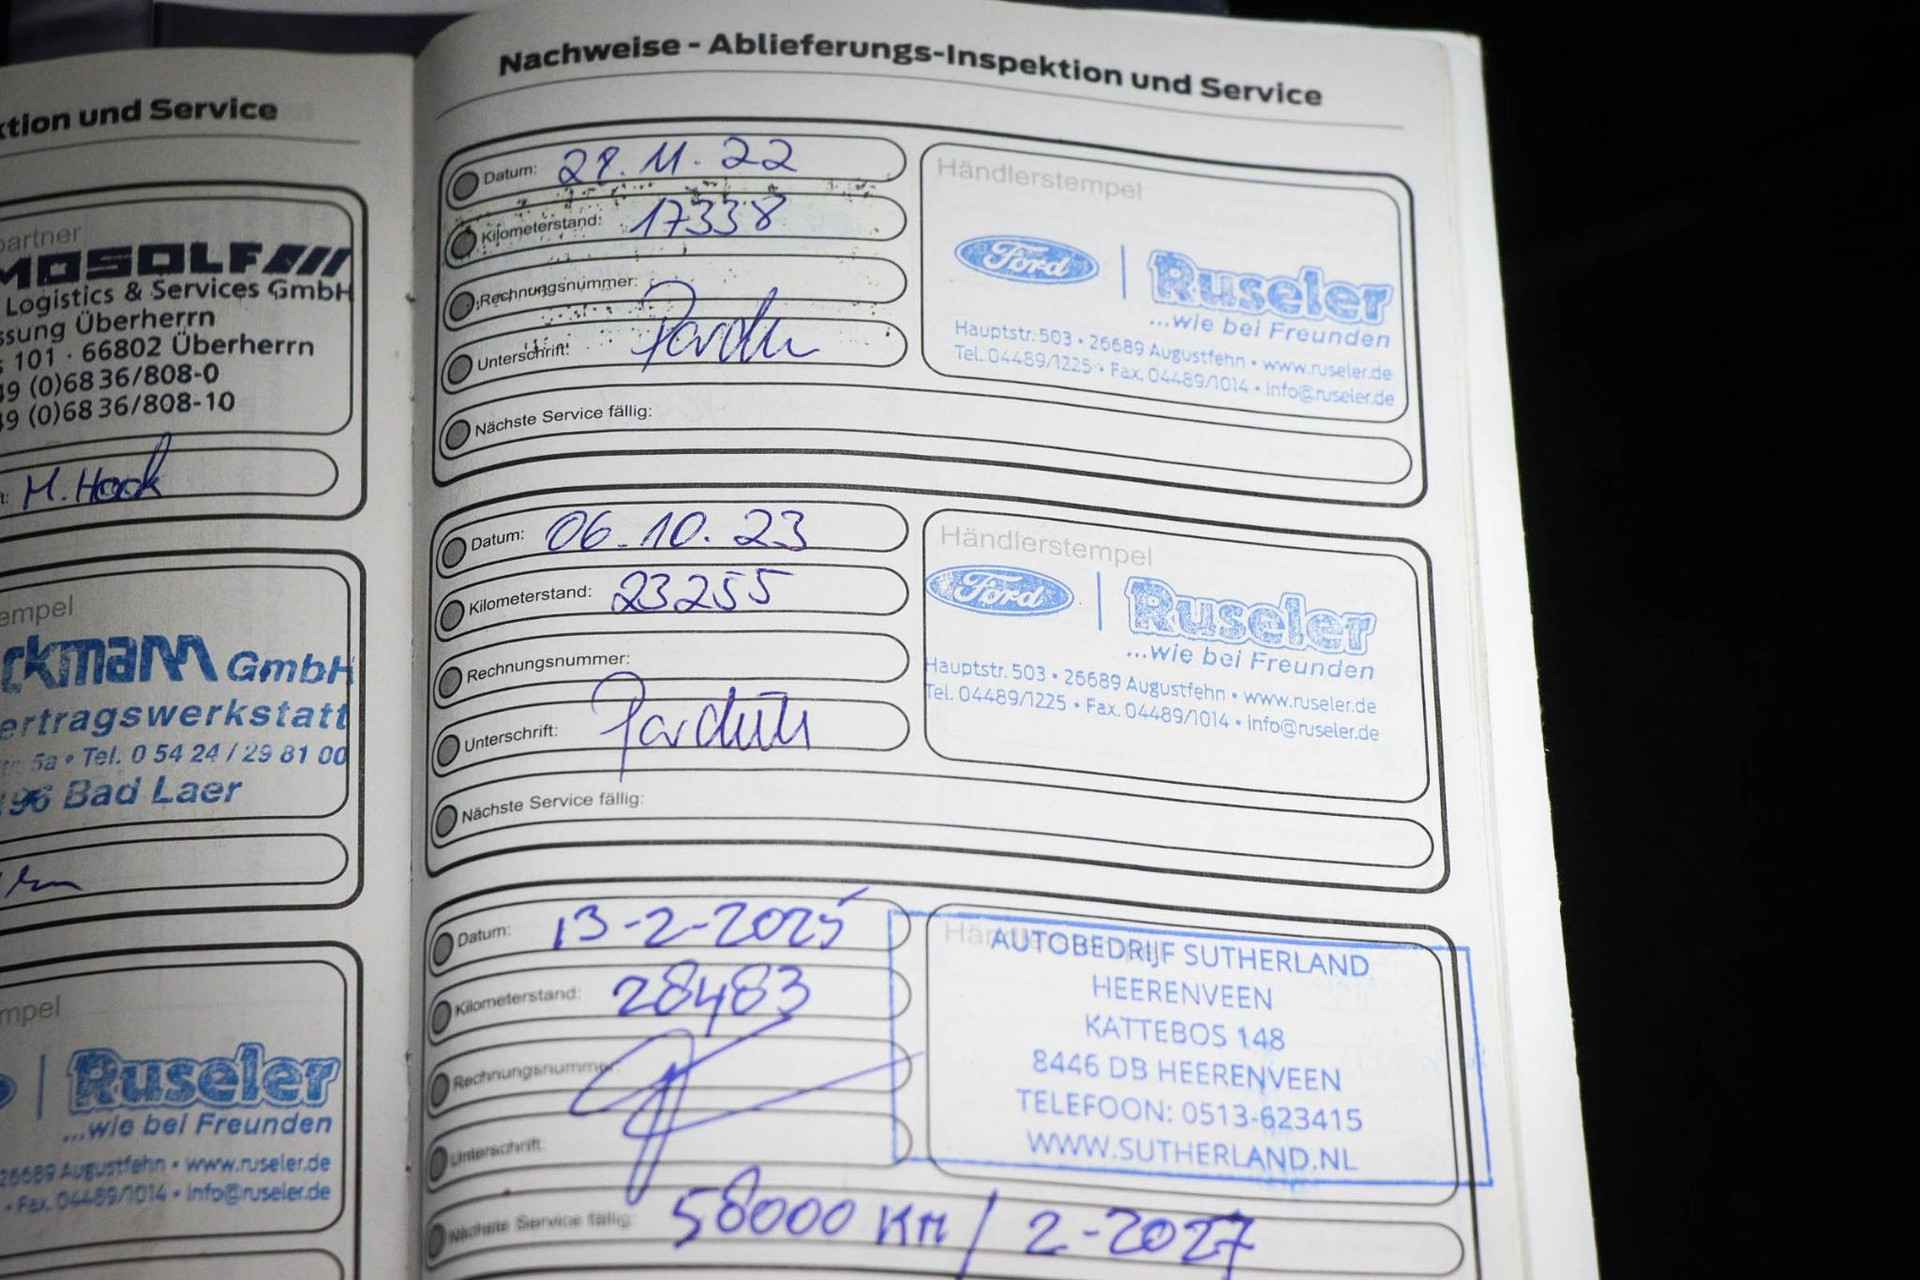 ktion und Service
partner
MOSOLF
Logistics & Services GmbH
ssung Überherrn
101 · 66802 Überherrn
49 (0)6836/808-0
49 (0)6836/808-10
t: M. Hock
empel
ckmann GmbH
ertragswerkstatt
5a • Tel. 0 54 24 / 29 81 00
196 Bad Laer
mpel
Ruseler
...wie bei Freunden
26689 Augustfehn • www.ruseler.de
• Fax. 04489/1014 • info@ruseler.de
Nachweise - Ablieferungs-Inspektion und Service
Datum: 29.11.22
Kilometerstand: 17338
Rechnungsnummer:
Unterschrift:
Nächste Service fällig:
Händlerstempel
Ford | Ruseler
...wie bei Freunden
Hauptstr. 503 • 26689 Augustfehn • www.ruseler.de
Tel. 04489/1225 • Fax. 04489/1014 • info@ruseler.de
Datum: 06.10.23
Kilometerstand: 23255
Rechnungsnummer:
Unterschrift:
Nächste Service fällig:
Händlerstempel
Ford | Ruseler
...wie bei Freunden
Hauptstr. 503 • 26689 Augustfehn • www.ruseler.de
Tel. 04489/1225 • Fax. 04489/1014 • info@ruseler.de
Datum: 13-2-2025
Kilometerstand: 28483
Rechnungsnummer:
Unterschrift:
Nächste Service fällig: 58000 KM / 2-2027
AUTOBEDRIJF SUTHERLAND
HEERENVEEN
KATTEBOS 148
8446 DB HEERENVEEN
TELEFOON: 0513-623415
WWW.SUTHERLAND.NL